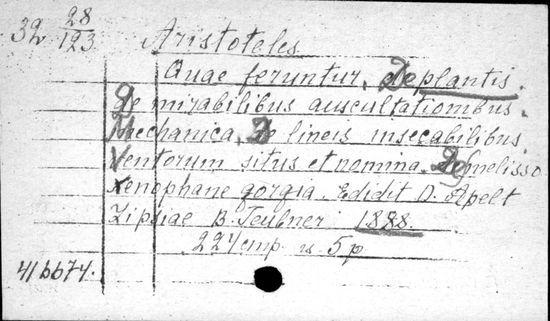 32 28/123
Aristoteles
Quae feruntur. De plantis.
De mirabilibus auscultationibus.
Mechanica. De lineis insecabilibus.
Ventorum situs et nomina. De melisso
Xenophane gorgia. Edidit O. Apelt
Lipsiae B. Teubner 1888.
224 стр. и 5 р
416674.